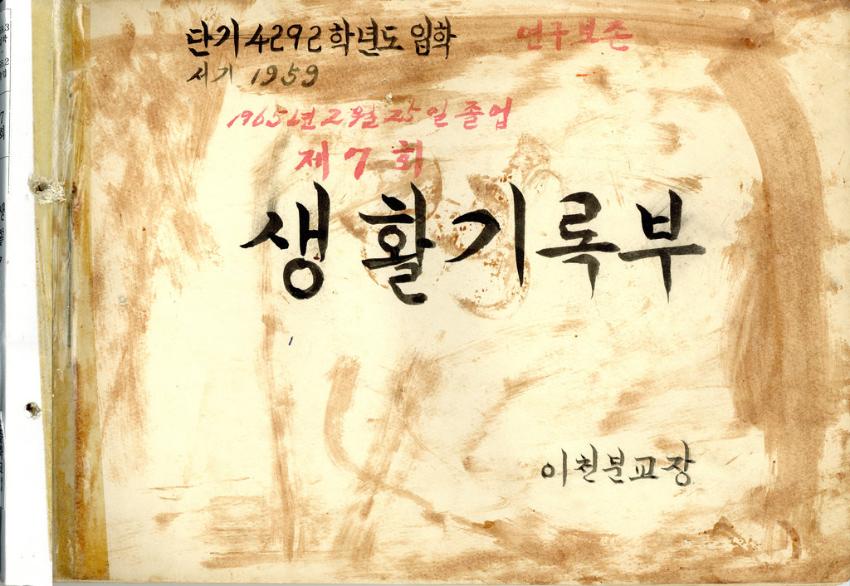 단기 4292 학년도 입학
영구보존
서기 1959
1965년 2월 25일 졸업
제 7 회
생활기록부
이천분교장